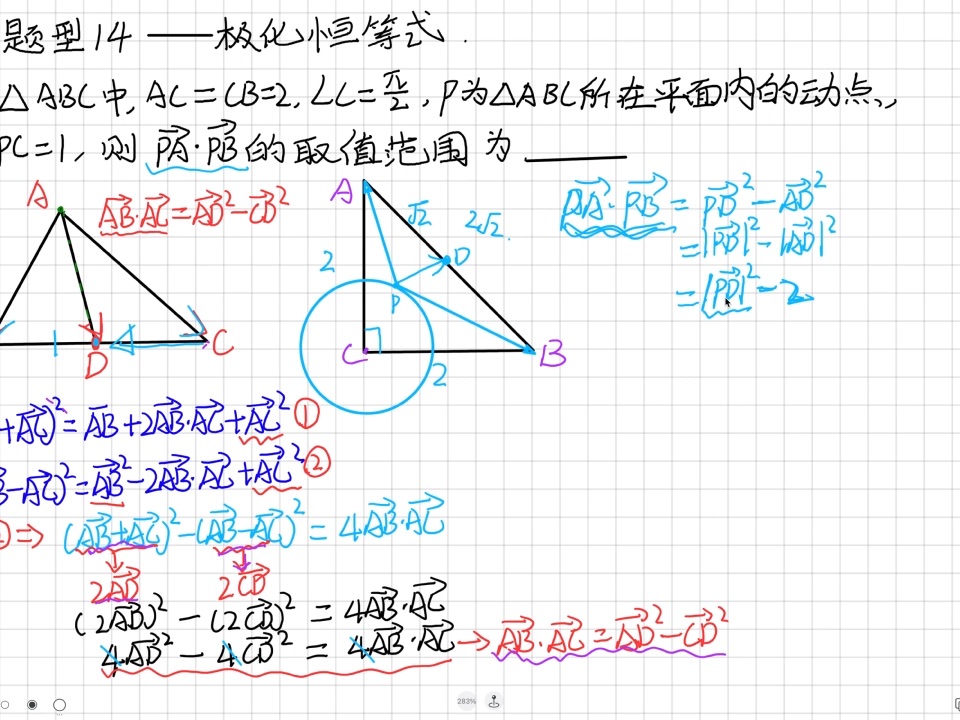 题型14 ——极化恒等式.
△ABC中, AC=CB=2, ∠C=π/2, P为△ABC所在平面内的动点,,
PC=1, 则 PA→·PB→ 的取值范围为 ______
A
AB→·AC→=AD→²-CD→²
D
C
A
√2
2√2.
D
2
P
C
B
2
PA→·PB→=PD→²-AD→²
=|PD→|²-|AD→|²
=|PD→|²-2
+AC→)²=AB+2AB→·AC→+AC→² ①
B-AC→)²=AB→²-2AB→·AC→+AC→² ②
⇒ (AB→+AC→)²-(AB→-AC→)²=4AB→·AC→
2AD→
2CD→
(2AD→)²-(2CD→)²=4AB→·AC→
4AD→²-4CD→²=4AB→·AC→→AB→·AC→=AD→²-CD→²
283%